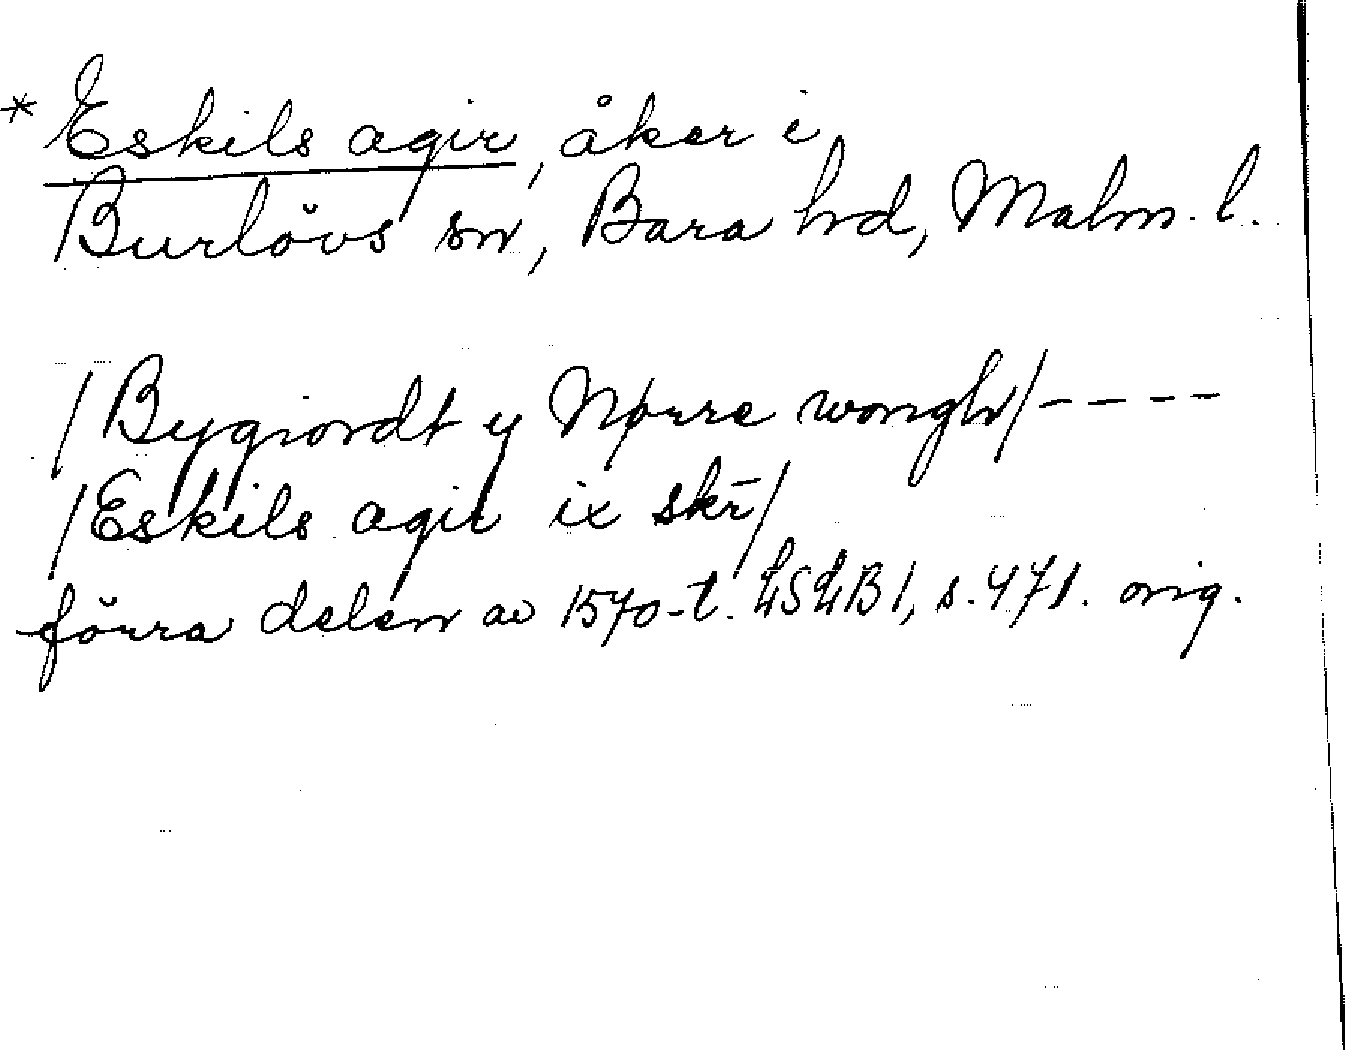 * Eskils agir, åker i
Burlövs sn, Bara hd, Malm. l.
/Bygiordt y Nørre wongh/----
/Eskils agir ix skr̄/
förra delen av 1570-t. LSLB 1, s. 471. orig.